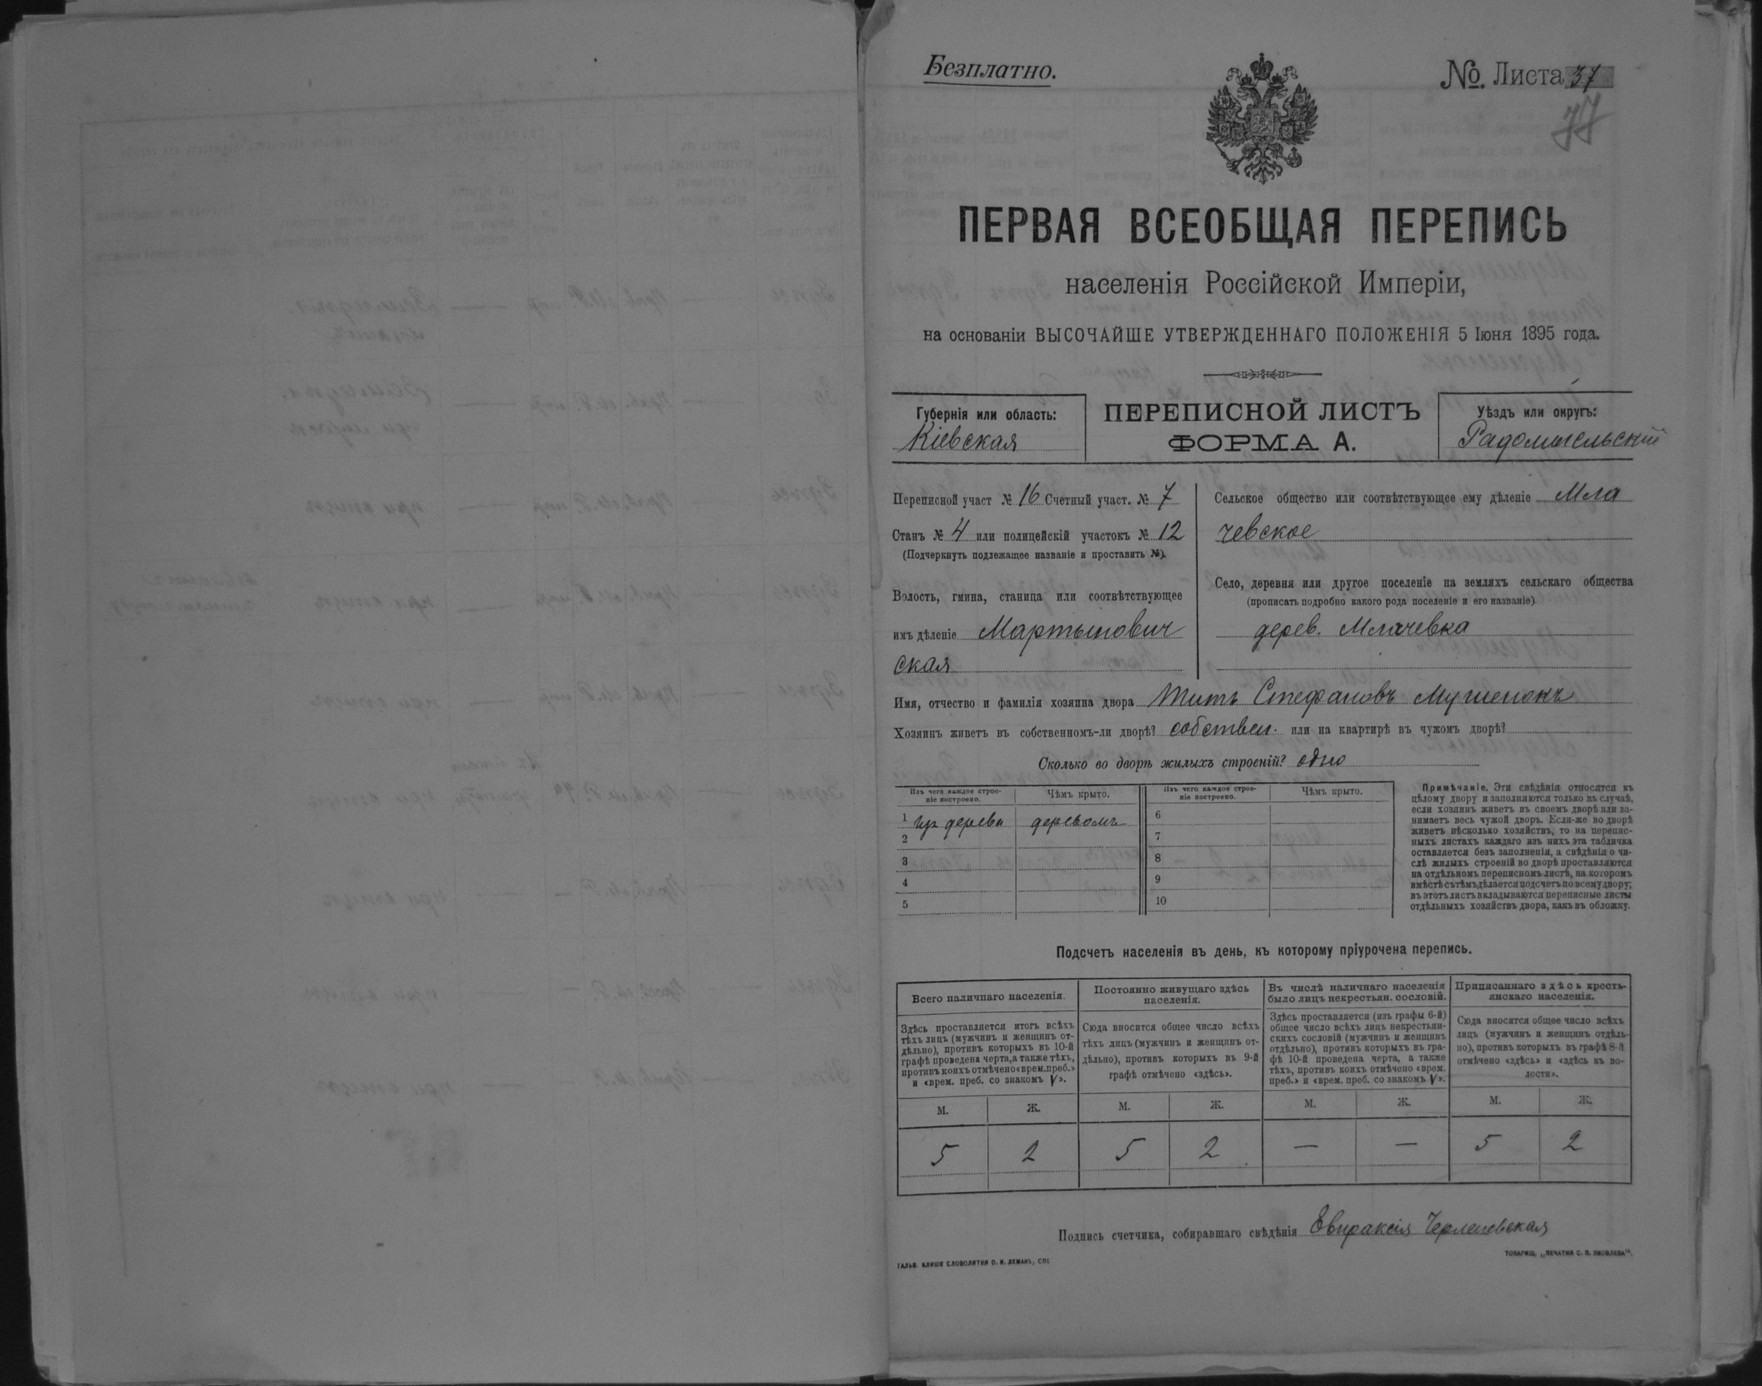 Безплатно.
№. Листа 37
77
ПЕРВАЯ ВСЕОБЩАЯ ПЕРЕПИСЬ
населенія Россійской Имперіи,
на основаніи ВЫСОЧАЙШЕ УТВЕРЖДЕННАГО ПОЛОЖЕНІЯ 5 Іюня 1895 года.
Губернія или область:
Кіевская
ПЕРЕПИСНОЙ ЛИСТЪ
ФОРМА А.
Уѣздъ или округъ:
Радомысльский
Переписной участ № 16 Счетный участ. № 7
Станъ № 4 или полицейскій участокъ № 12
(Подчеркнуть подлежащее названіе и проставить №).
Волость, гмина, станица или соотвѣтствующее
имъ дѣленіе Мартынович
ская
Сельское общество или соотвѣтствующее ему дѣленіе Мла
чевское
Село, деревня или другое поселеніе на земляхъ сельскаго общества
(прописать подробно какого рода поселеніе и его названіе)
дерев. Млачевка
Имя, отчество и фамилія хозяина двора Титъ Стефановъ Мушенокъ
Хозяинъ живетъ въ собственномъ-ли дворѣ? собствен. или на квартирѣ въ чужомъ дворѣ?
Сколько во дворѣ жилыхъ строеній? одно
Изъ чего каждое строе-
ніе построено.
Чѣмъ крыто.
Изъ чего каждое строе-
ніе построено.
Чѣмъ крыто.
1 изъ дерева деревомъ
2
3
4
5
6
7
8
9
10
Примѣчаніе. Эти свѣдѣнія относятся къ
цѣлому двору и заполняются только въ случаѣ,
если хозяинъ живетъ въ своемъ дворѣ или за-
нимаетъ весь чужой дворъ. Если-же во дворѣ
живетъ нѣсколько хозяйствъ, то на перепис-
ныхъ листахъ каждаго изъ нихъ эта табличка
оставляется безъ заполненія, а свѣдѣнія о чи-
слѣ жилыхъ строеній во дворѣ проставляются
на отдѣльномъ переписномъ листѣ, на которомъ
вмѣстѣ съ тѣмъ дѣлается подсчетъ по всему двору;
въ этотъ листъ вкладываются переписные листы
отдѣльныхъ хозяйствъ двора, какъ въ обложку.
Подсчетъ населенія въ день, къ которому пріурочена перепись.
Всего наличнаго населенія.
Здѣсь проставляется итогъ всѣхъ
тѣхъ лицъ (мужчинъ и женщинъ от-
дѣльно), противъ которыхъ въ 10-й
графѣ проведена черта, а также тѣхъ,
противъ коихъ отмѣчено «врем. преб.»
и «врем. преб. со знакомъ V».
Постоянно живущаго здѣсь
населенія.
Сюда вносится общее число всѣхъ
тѣхъ лицъ (мужчинъ и женщинъ от-
дѣльно), противъ которыхъ въ 9-й
графѣ отмѣчено «здѣсь».
Въ числѣ наличнаго населенія
было лицъ некрестьян. сословій.
Здѣсь проставляется (изъ графы 6-й)
общее число всѣхъ лицъ некрестьян-
скихъ сословій (мужчинъ и женщинъ
отдѣльно), противъ которыхъ въ гра-
фѣ 10-й проведена черта, а также
тѣхъ, противъ коихъ отмѣчено «врем.
преб.» и «врем. преб. со знакомъ V».
Приписаннаго здѣсь кресть-
янскаго населенія.
Сюда вносится общее число всѣхъ
лицъ (мужчинъ и женщинъ отдѣль-
но), противъ которыхъ въ графѣ 8-й
отмѣчено «здѣсь» и «здѣсь въ во-
лости».
М. Ж. М. Ж. М. Ж. М. Ж.
5 2 5 2 — — 5 2
Подпись счетчика, собиравшаго свѣдѣнія Евпраксія
ГАЛЬВ. КЛИШЕ СЛОВОЛИТНИ О. И. ЛЕМАНЪ, СПБ
ТОВАРИЩ. „ПЕЧАТНЯ С. П. ЯКОВЛЕВА“.